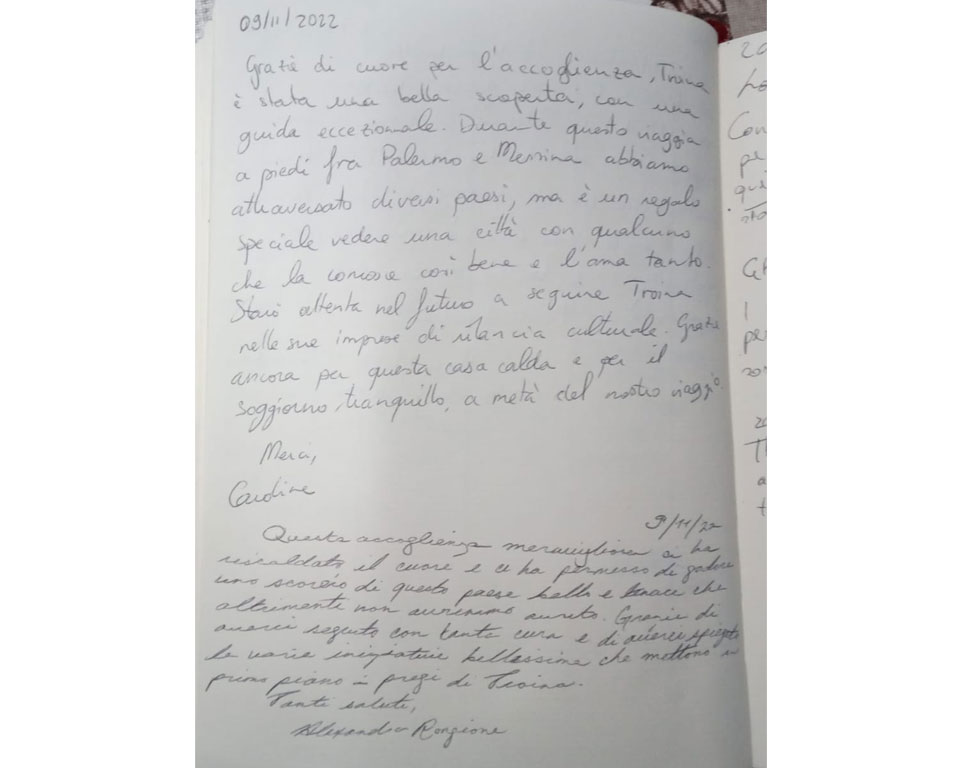 09/11/2022
Grazie di cuore per l'accoglienza, Troina
è stata una bella scoperta, con una
guida eccezionale. Durante questo viaggio
a piedi fra Palermo e Messina abbiamo
attraversato diversi paesi, ma è un regalo
speciale vedere una città con qualcuno
che la conosce così bene e l'ama tanto.
Starò attenta nel futuro a seguire Troina
nelle sue imprese di rilancia culturale. Grazie
ancora per questa casa calda e per il
soggiorno tranquillo, a metà del nostro viaggio.
Merci,
Caroline
9/11/22
Questa accoglienza meravigliosa ci ha
riscaldato il cuore e ci ha permesso di godere
uno scorcio di questo paese bello e tenace che
altrimenti non avremmo avuto. Grazie di
averci seguito con tanta cura e di averci spiegato
le varie iniziative bellissime che mettono in
primo piano i pregi di Troina.
Tanti saluti,
Alexandra Rongione
20
Con
pe
que
sta
I
per
20
Th
a
t